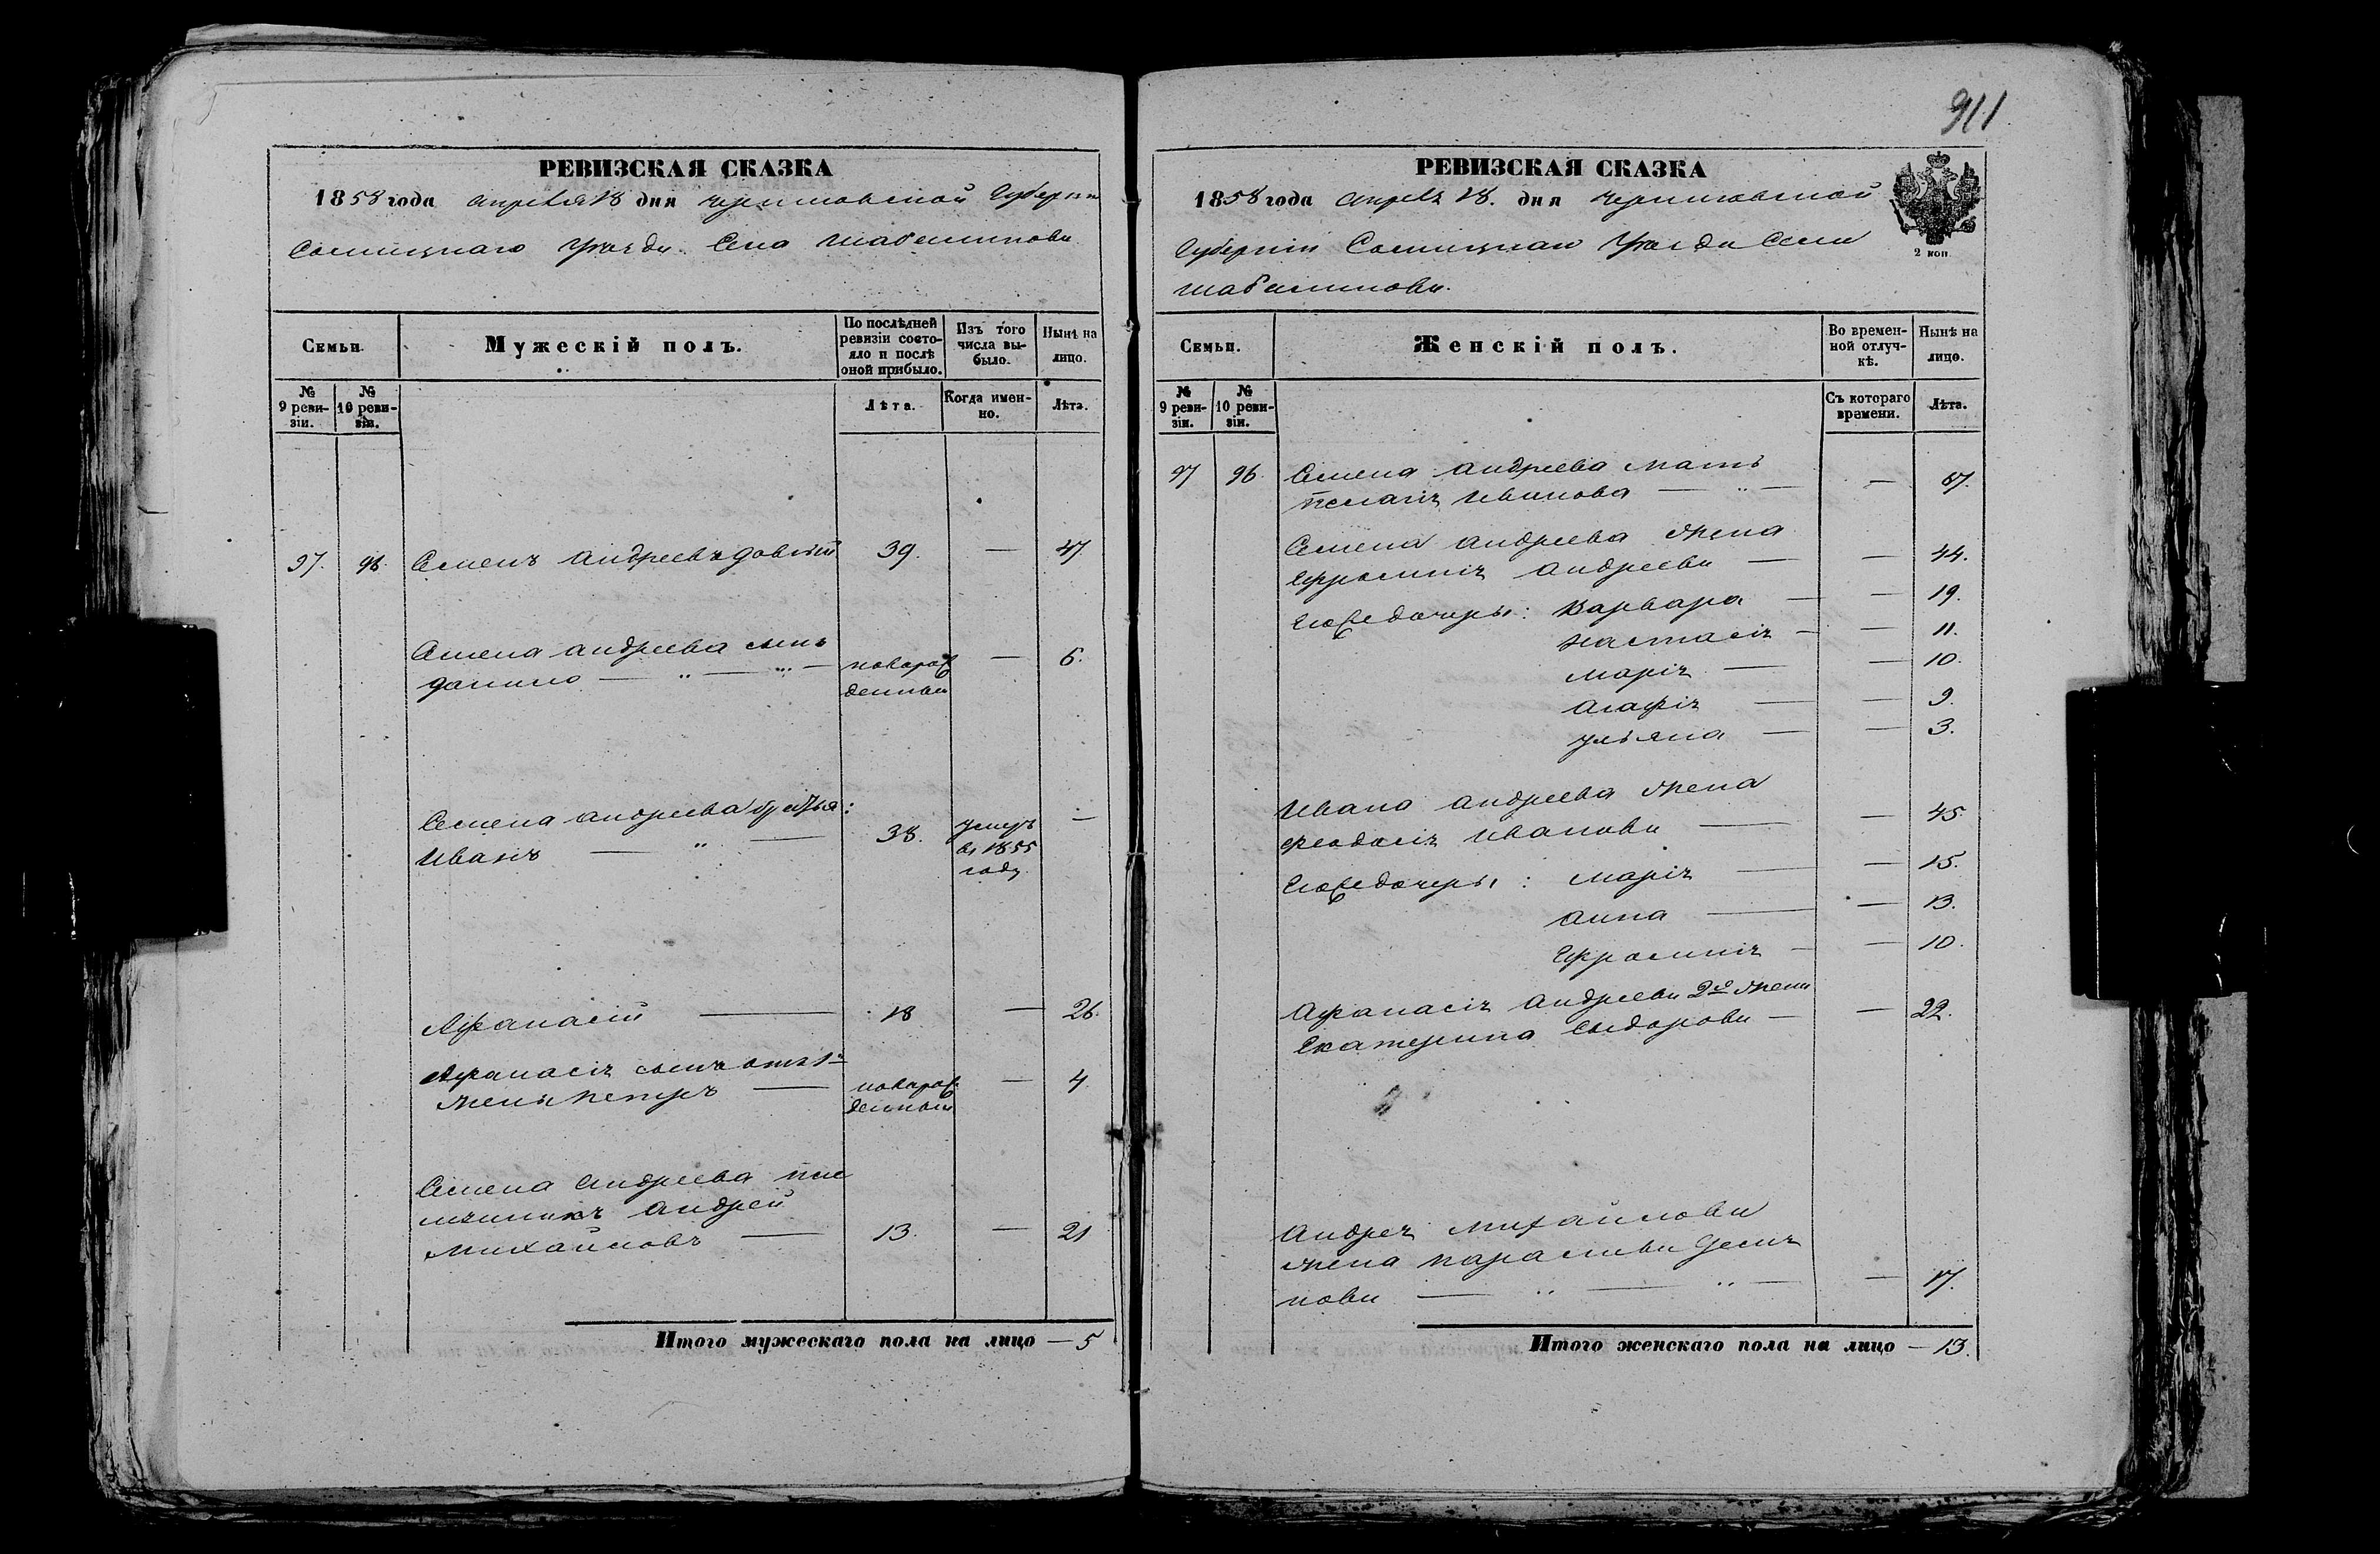 911
РЕВИЗСКАЯ СКАЗКА
1858 года апреля 18 дня Черниговской Губернии
Сосницкаго Уезда Села Шабалинова
Семьи.
Мужескій полъ.
По послѣдней ревизіи состояло и послѣ оной прибыло.
Изъ того числа выбыло.
Нынѣ на лицо.
№ 9 ревизіи.
№ 10 ревизіи.
Лѣта.
Когда именно.
Лѣта.
97. 96. Семенъ Андреевъ 39. — 47
Семена Андреева сынъ
Данило — „ — новорож — 6.
денный
Семена Андреева братья:
Иванъ — „ — 38. умеръ —
въ 1855
году
Афанасій — 18 — 26.
Афанасія сынъ отъ 1й
жены Петръ — новорож — 4
денный
Семена Андреева пле
мянникъ Андрей
Михайловъ — 13. — 21
Итого мужескаго пола на лицо — 5
РЕВИЗСКАЯ СКАЗКА
2 коп
1858 года апреля 18. дня Черниговской
Губернии Сосницкаго Уезда Села
Шабалинова.
Семьи.
Женскій полъ.
Во временной отлучкѣ.
Нынѣ на лицо.
№ 9 ревизіи.
№ 10 ревизіи.
Съ котораго времени.
Лѣта.
97 96. Семена Андреева мать
Пелагія Иванова — „ — — 67.
Семена Андреева жена
Ефросинія Андреева — — 44.
Его же дочери: Варвара — — 19.
Настасія — — 11.
Марія — — 10.
Агафія — — 9.
Ульяна — — 3.
Ивана Андреева жена
Феодосія Иванова — — 45.
Его же дочери: Марія — — 15.
Анна — — 13.
Ефросинія — — 10.
Афанасія Андреева 2я жена
Екатерина Сидорова — — 22.
Андрея Михайлова
жена Параскева Демья
нова — „ — — 17.
Итого женскаго пола на лицо — 13.